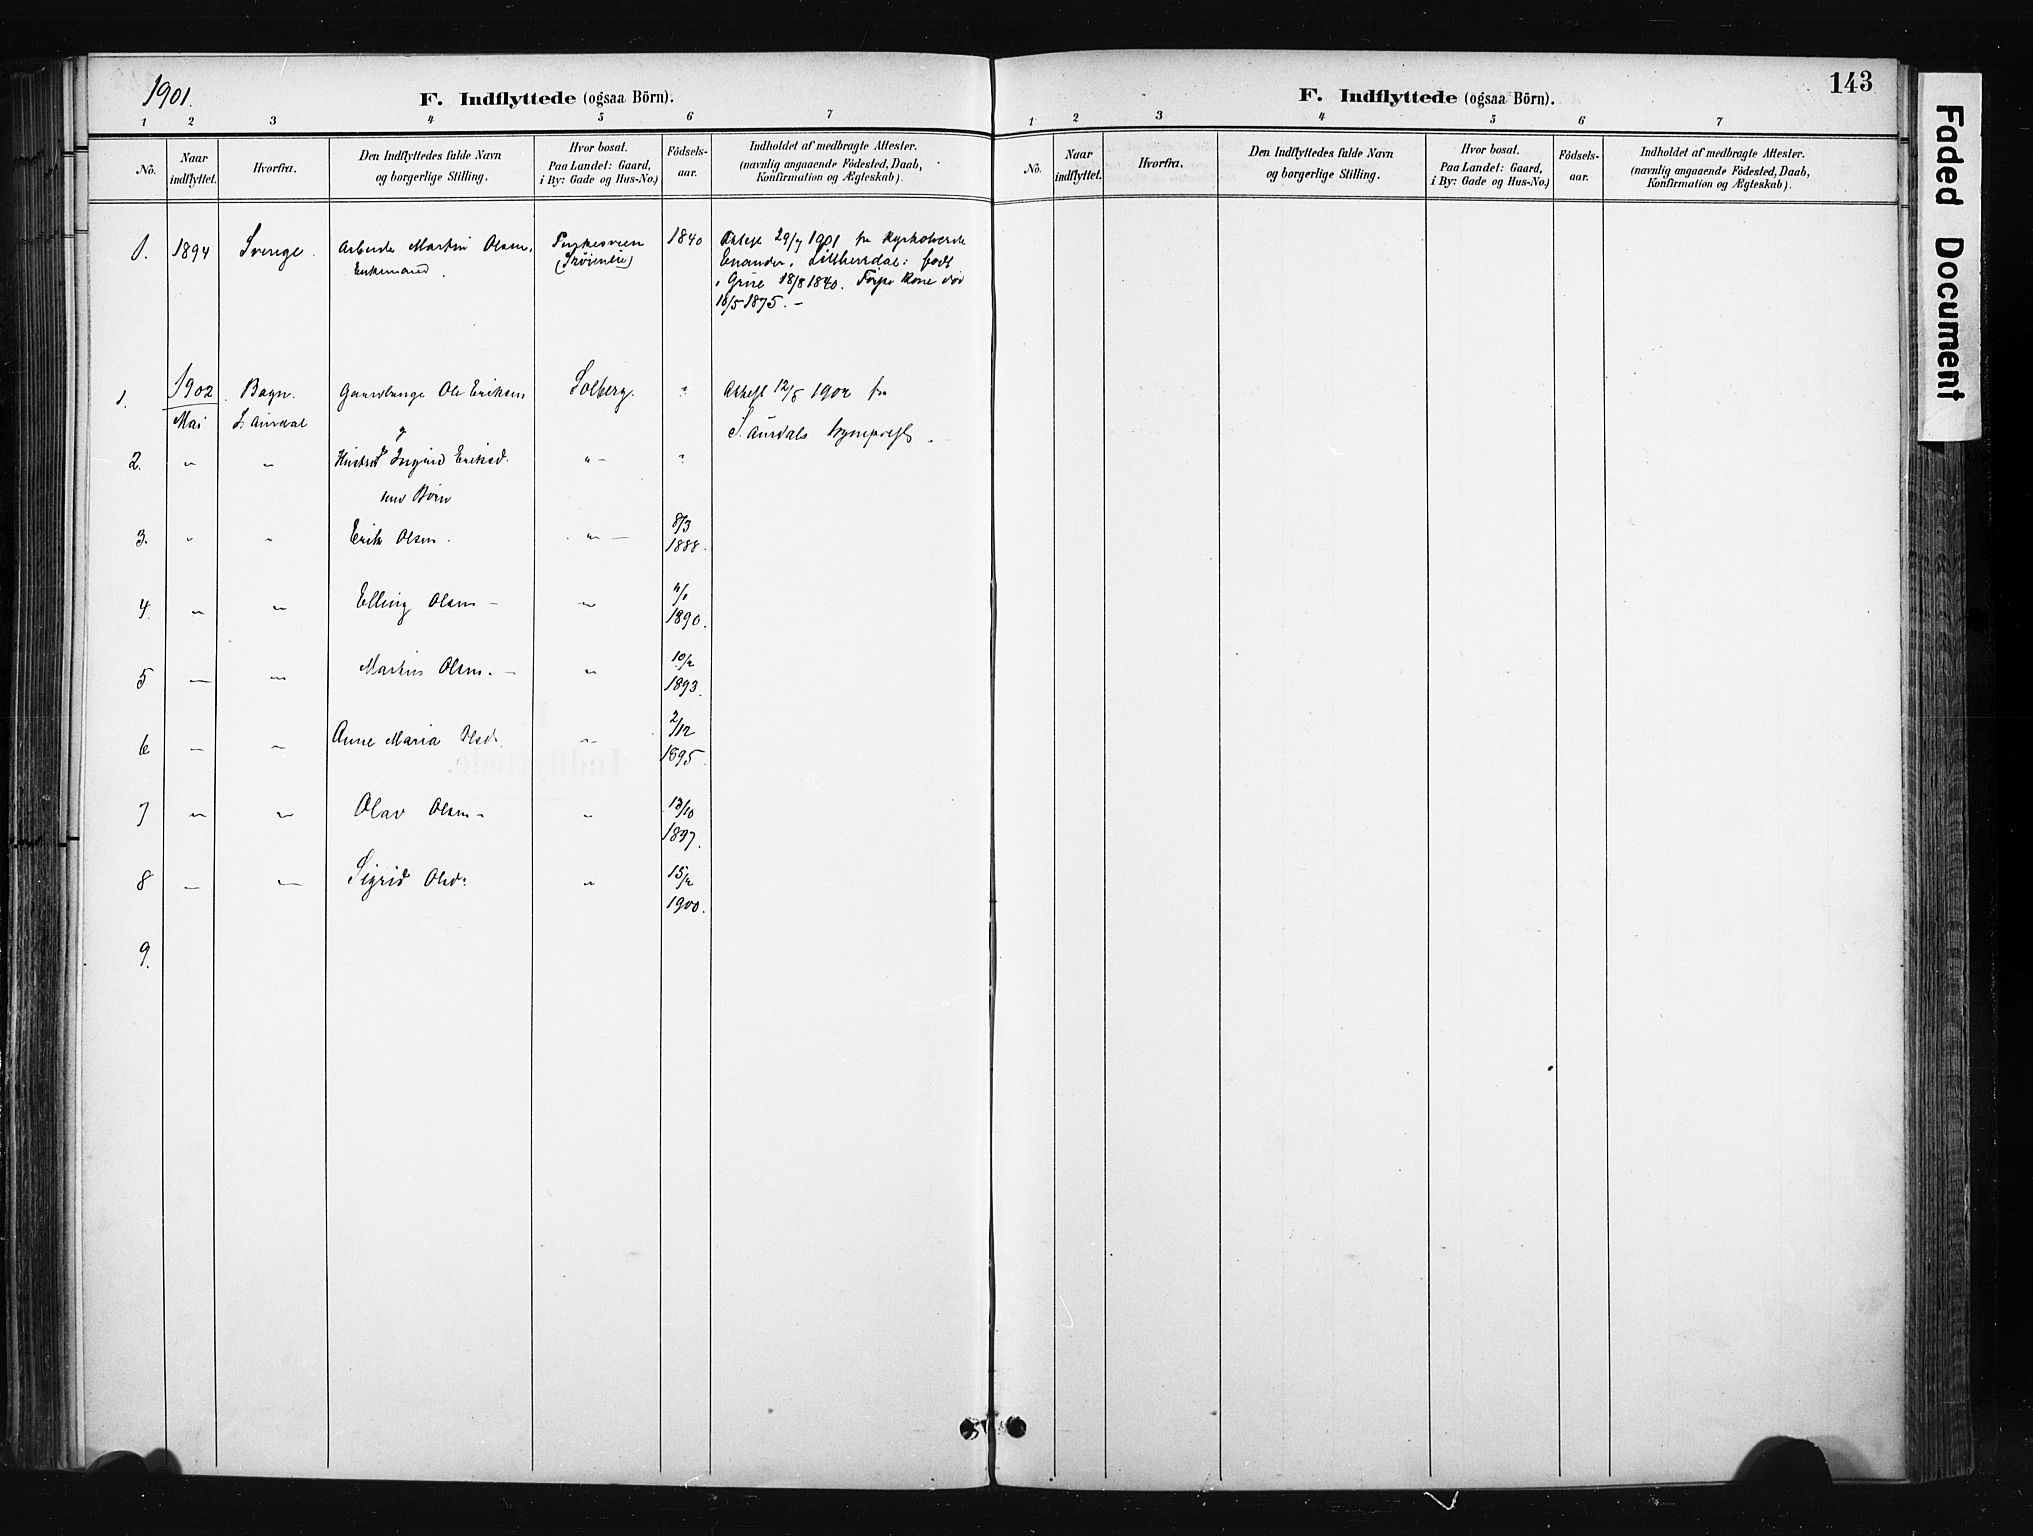 1901.
F. Indflyttede (ogsaa Börn).
1 2 3 4 5 6 7
No. Naar indflyttet. Hvorfra. Den Indflyttedes fulde Navn og borgerlige Stilling. Hvor bosat. Paa Landet: Gaard, i By: Gade og Hus-No.) Födsels-aar. Indholdet af medbragte Attester. (navnlig angaaende Födested, Daab, Konfirmation og Ægteskab).
1. 1894 Sverige. Martin Olsen, 1840 Attest 29/7 1901 fra
Enkemand.
Grue 18/8 1840. Kone død
18/5 1875. –
1. 1902 Bagn. Ole Eriksen Solberg. " Attest 12/5 1902 fra
Mai S. Aurdal og S. Aurdals
2. " " Hustru Ingrid Eriksd. " – "
Børn
3. " " Erik Olsen. " – 8/3
1888.
4. " " Elling Olsen – "
1890.
5 – " Martin Olsen. – " 10/2
1893.
6 – " Anne Maria Olsd. " 2/12
1895.
7 " " Olav Olsen – " 13/10
1897.
8 – " Sigrid Olsd. " 15/2
1900.
9.
143
F. Indflyttede (ogsaa Börn).
1 2 3 4 5 6 7
No. Naar indflyttet. Hvorfra. Den Indflyttedes fulde Navn og borgerlige Stilling. Hvor bosat. Paa Landet: Gaard, i By: Gade og Hus-No.) Födsels-aar. Indholdet af medbragte Attester. (navnlig angaaende Födested, Daab, Konfirmation og Ægteskab).
Faded Document